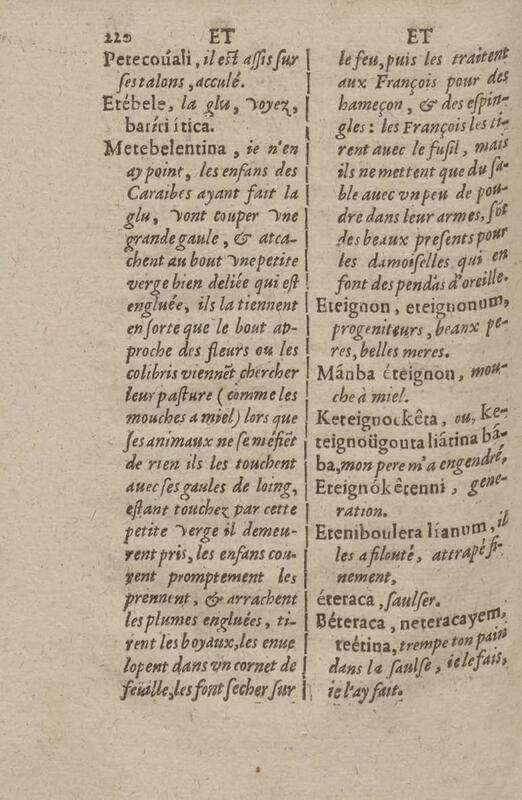 220 ET ET
Petecoúali, il est assis sur
ses talons, acculé.
Etébele, la glu, voyez,
batíci ítica.
Metebelentina, ie n'en
ay point, les enfans des
Caraibes ayant fait la
glu, vont couper vne
grande gaule, & atca-
chent au bout vne petite
verge bien deliée qui est
engluée, ils la tiennent
en sorte que le bout ap-
proche des fleurs ou les
colibris viennẽt chercher
leur pasture (comme les
mouches a miel) lors que
ses animaux ne se méfiẽt
de rien ils les touchent
auec ses gaules de loing,
estant touchez par cette
petite verge il demeu-
rent pris, les enfans cou-
rent promptement les
prennent, & arrachent
les plumes engluées, ti-
rent les boyaux, les enue
lopent dans vn cornet de
feüille, les font secher sur
le feu, puis les traitent
aux François pour des
hameçon, & des espin-
gles : les François les ti-
rent auec le fusil, mais
ils ne mettent que du sa-
ble auec vn peu de pou-
dre dans leur armes, sõt
des beaux presents pour
les damoiselles qui en
font des pendãs d'oreille.
Eteignon, eteignonum,
progeniteurs, beaux pe-
res, belles meres.
Mánba éteignon, mou-
che à miel.
Keteignockêta, ou, ke-
teignoügouta liátina bâ-
ba, mon pere m'a engendré,
Eteignókêtenni, gene-
ration.
Eteniboulera líanum, il
les a filouté, attrapé fi-
nement,
éteraca, saulser.
Béteraca, neteracayem,
teétina, trempe ton pain
dans la saulse, ie le fais,
ie l'ay fait.